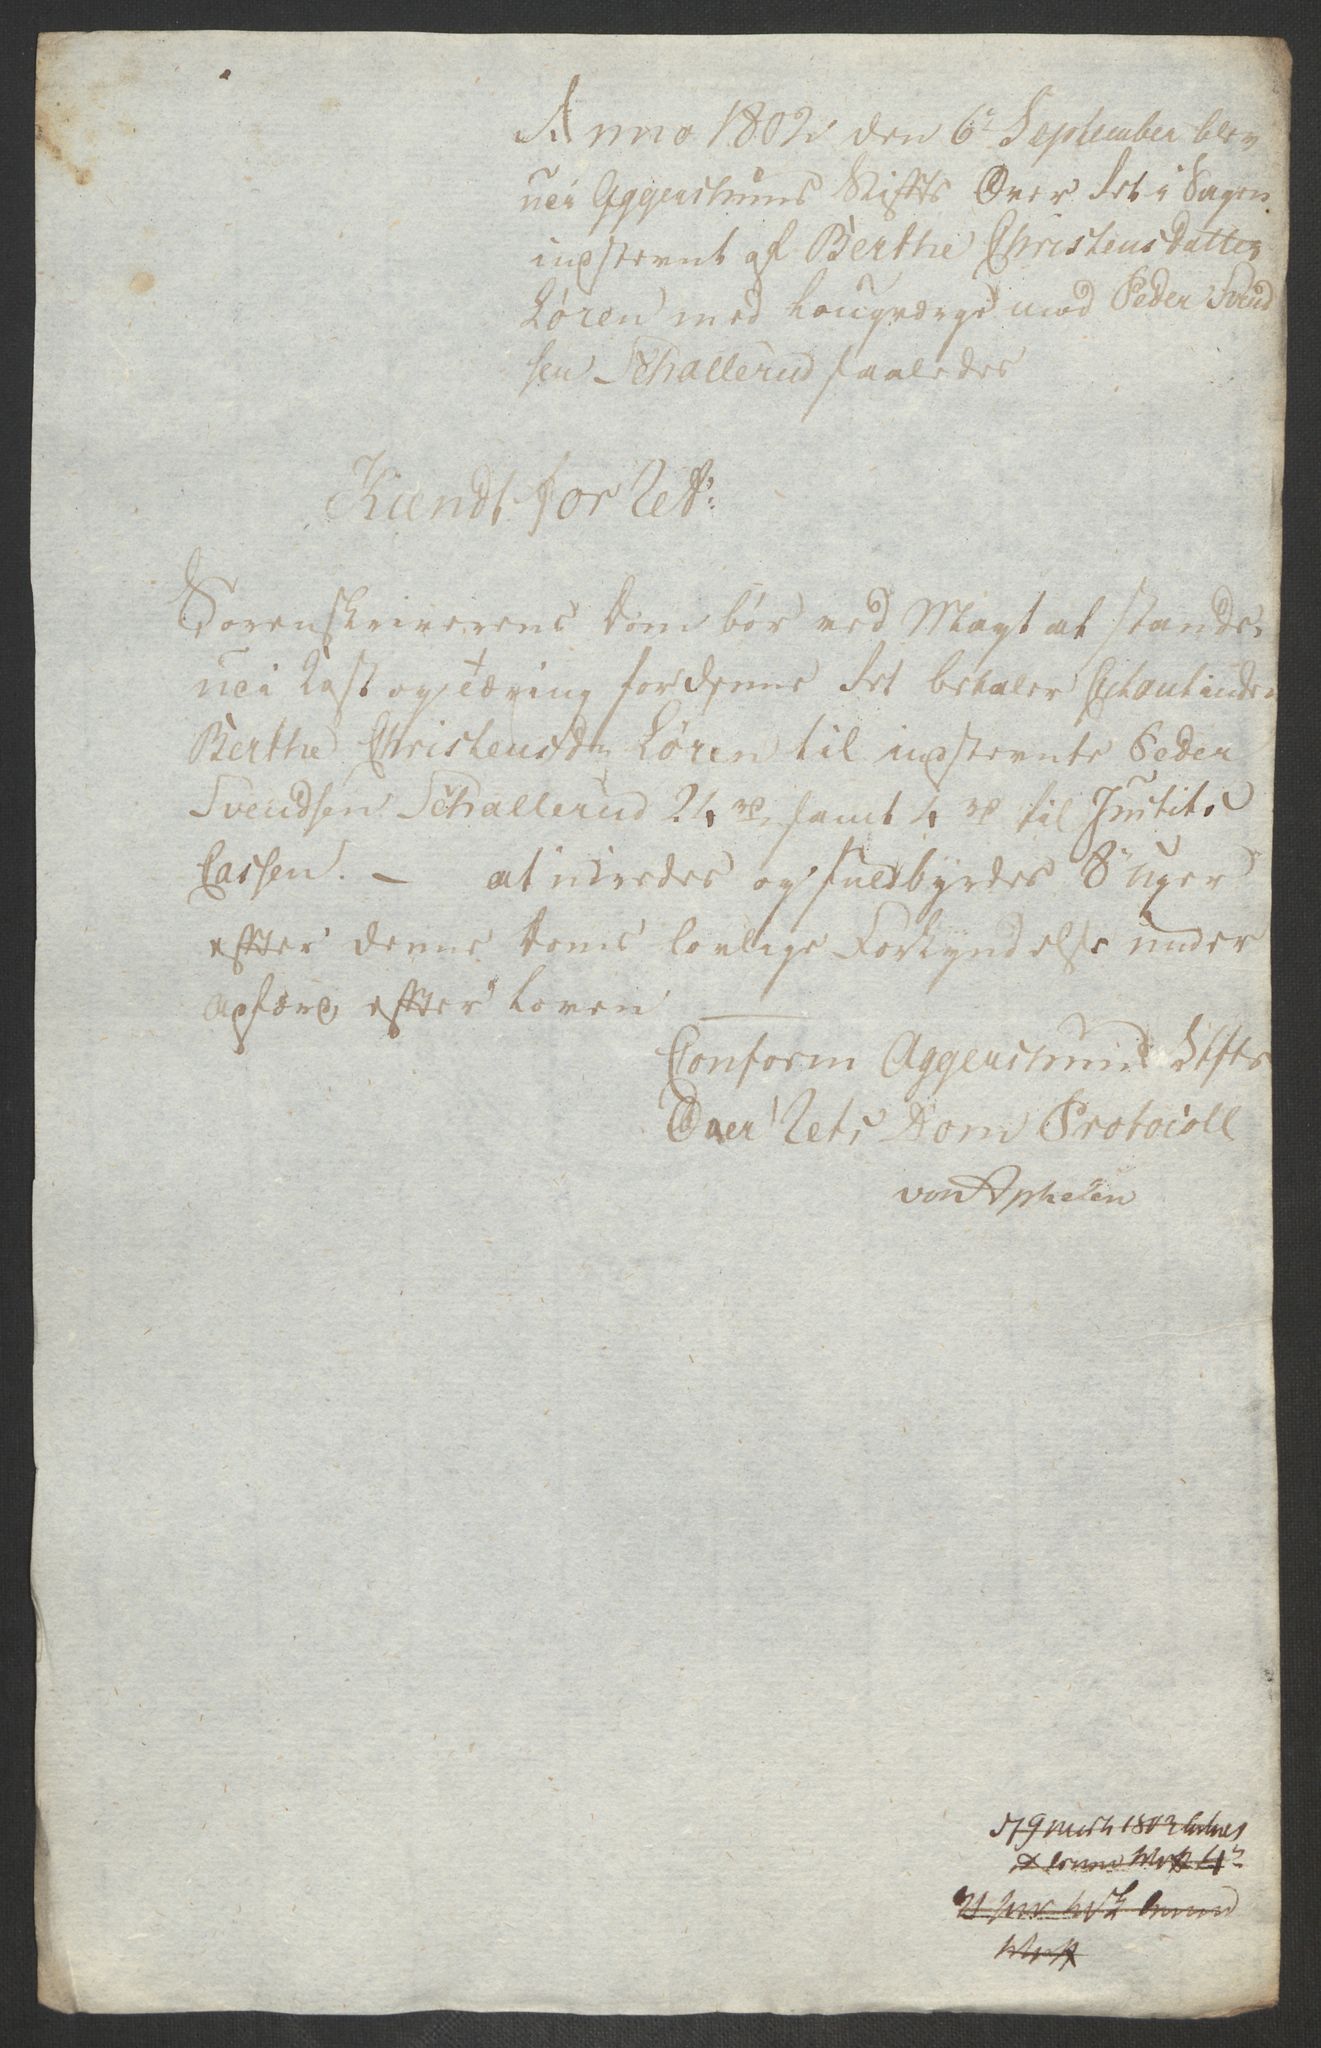 Anno 1802 den 6te September blev
ved Aggershuus Stifts Over Ret i Sagen
indstevnt af Berthe Christensdatter
Løren med Laugværge mod Peder Svend
sen Schallerud saaledes
Kiendt for Ret:
Sorenskriverens Dom bør ved Magt at stande,
ved Kost og Tæring for denne Ret betaler Citantinden
Berthe Christensdr Løren til indstevnte Peder
Svendsen Schallerud 24 rd samt 4 rd til Justits
Cassen. – at udredes og fuldbyrdes 8 uger
efter denne Doms lovlige Forkyndelse under
Adfærd efter Loven
Conform Aggershuus Stifts
Over Rets Dom Protocoll
von Aphelen
1802